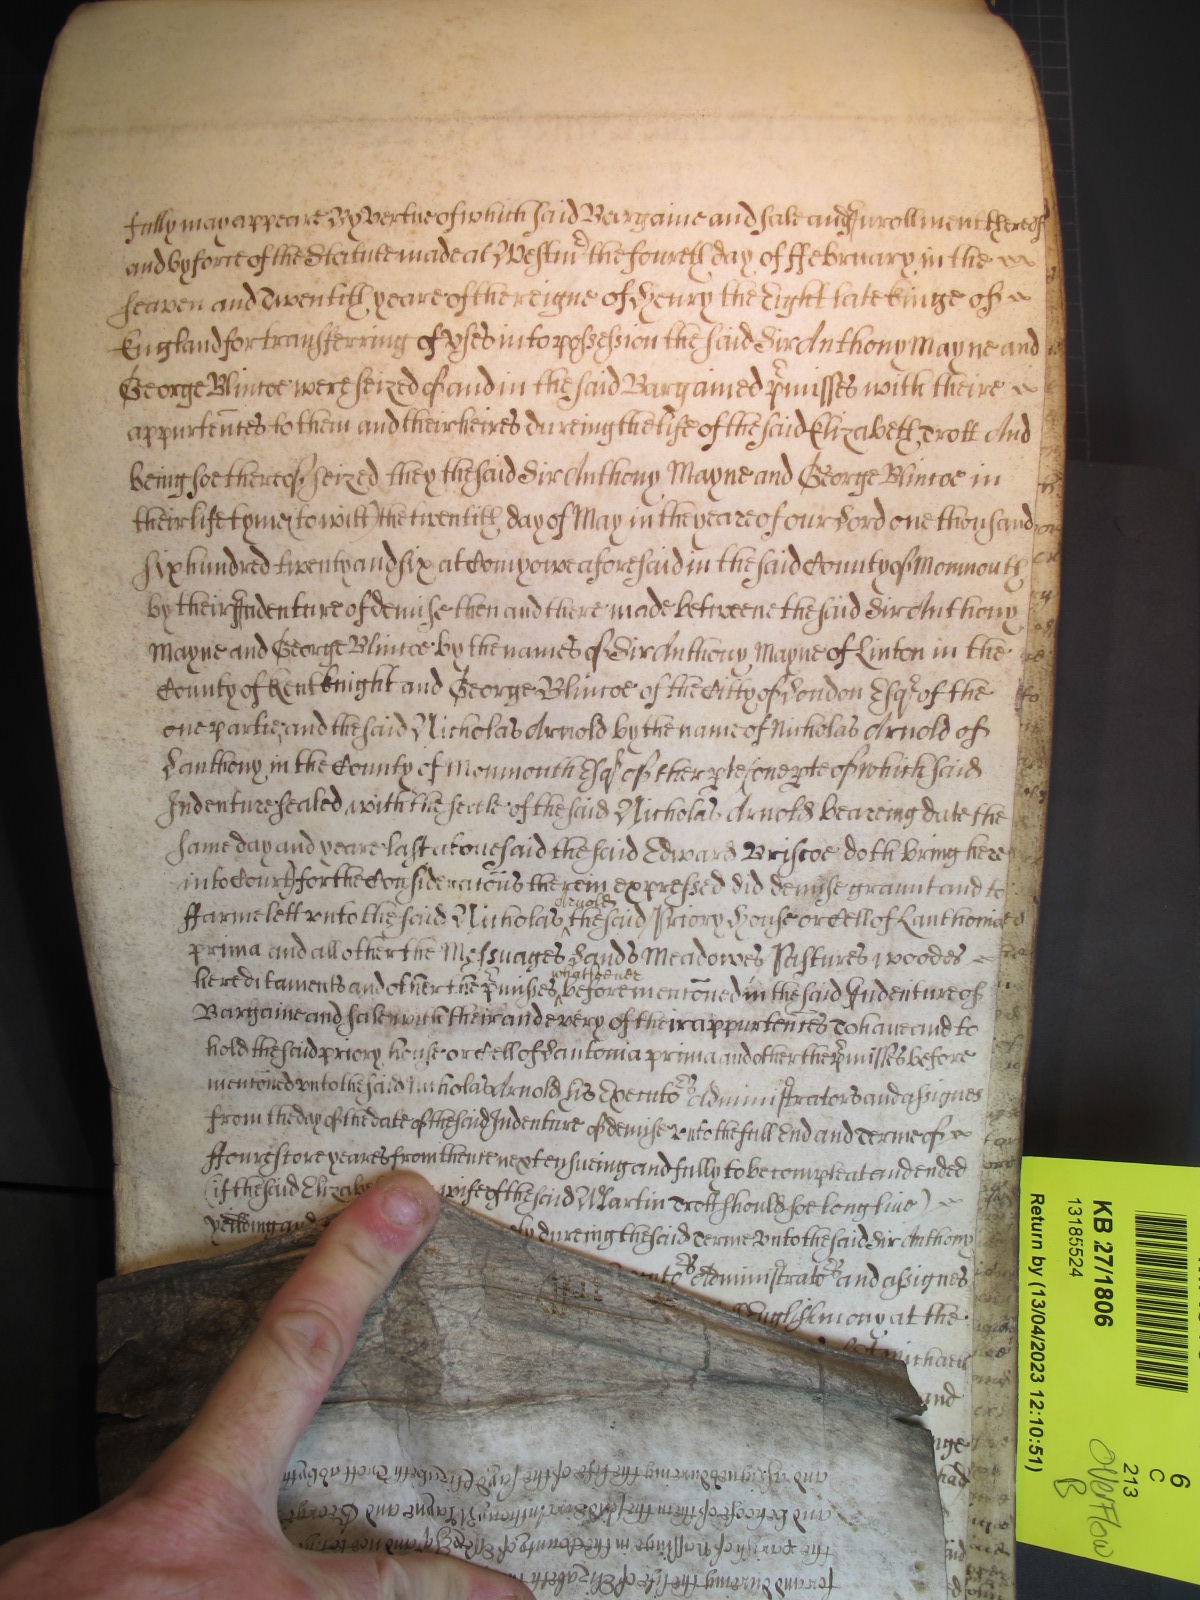 fully may appeare By vertue of which said Bargaine and sale and Inrollment thereof
and by force of the Statute made at Westmr the fourth day of ffebruary in the
seaven and Twentith yeare of the reigne of Henry the Eight late kinge of
England for transferring of Vses into possession the said Sir Anthony Mayne and
George Blincoe were seized of and in the said Bargained pmisses with theire
appurtences to them and their heires dureing the life of the said Elizabeth Trott And
being soe thereof seized they the said Sir Anthony Mayne and George Blincoe in
their life tyme (to witt) the twentith day of May in the yeare of our Lord one thousand
six hundred twenty and six at Comyowe aforesaid in the said County of Monmouth
by their Indenture of demise then and there made betweene the said Sir Anthony
Mayne and George Blincoe by the names of Sir Anthony Mayne of Linton in the
County of Kent knight and George Blincoe of the Citty of London Esqr of the
one partie and the said Nicholas Arnold by the name of Nicholas Arnold of
Lanthony in the County of Monmouth Esqr of ther pte (one pte of which said
Indenture sealed with the seale of the said Nicholas Arnold beareing date the
same day and yeare last abovesaid the said Edward Briscoe doth bring here
into Court) for the Consideracons therein expressed did demise graunt and to
ffarme lett vnto the said Nicholas Arnold the said Priory House or Cell of Lanthonia
prima and all other the Messuages Lands Meadowes Pastures woodes
hereditaments and other the pmisses whatsoever before menconed in the said Indenture of
Bargaine and sale with their and every of their appurtences To have and to
hold the said priory house or Cell of Lantonia prima and other the pmisses before
menconed vnto the said Nicholas Arnold his Executors Administrators and assignes
from the day of the date of the said Indenture of demise vnto the full End and Terme of
ffourescore yeares from thence next ensueing and fully to be compleat and ended
(if the said wife of the said Martin Trott should soe long live)
yeilding and dureing the said Terme vnto the said Sir Anthony
Administrators and assignes
English mony at the
Michaell
and
and Assignes dureing the life of the sayd Elizabeth Trott
and behoofe of them the said Sir Anthony Mayne and George
the parish of in the County of Esqr and
for and dureing the life of Elizabeth
KB 27/1806
13185524
Return by (13/04/2023 12:10:51)
6
C
213
Overflow
B